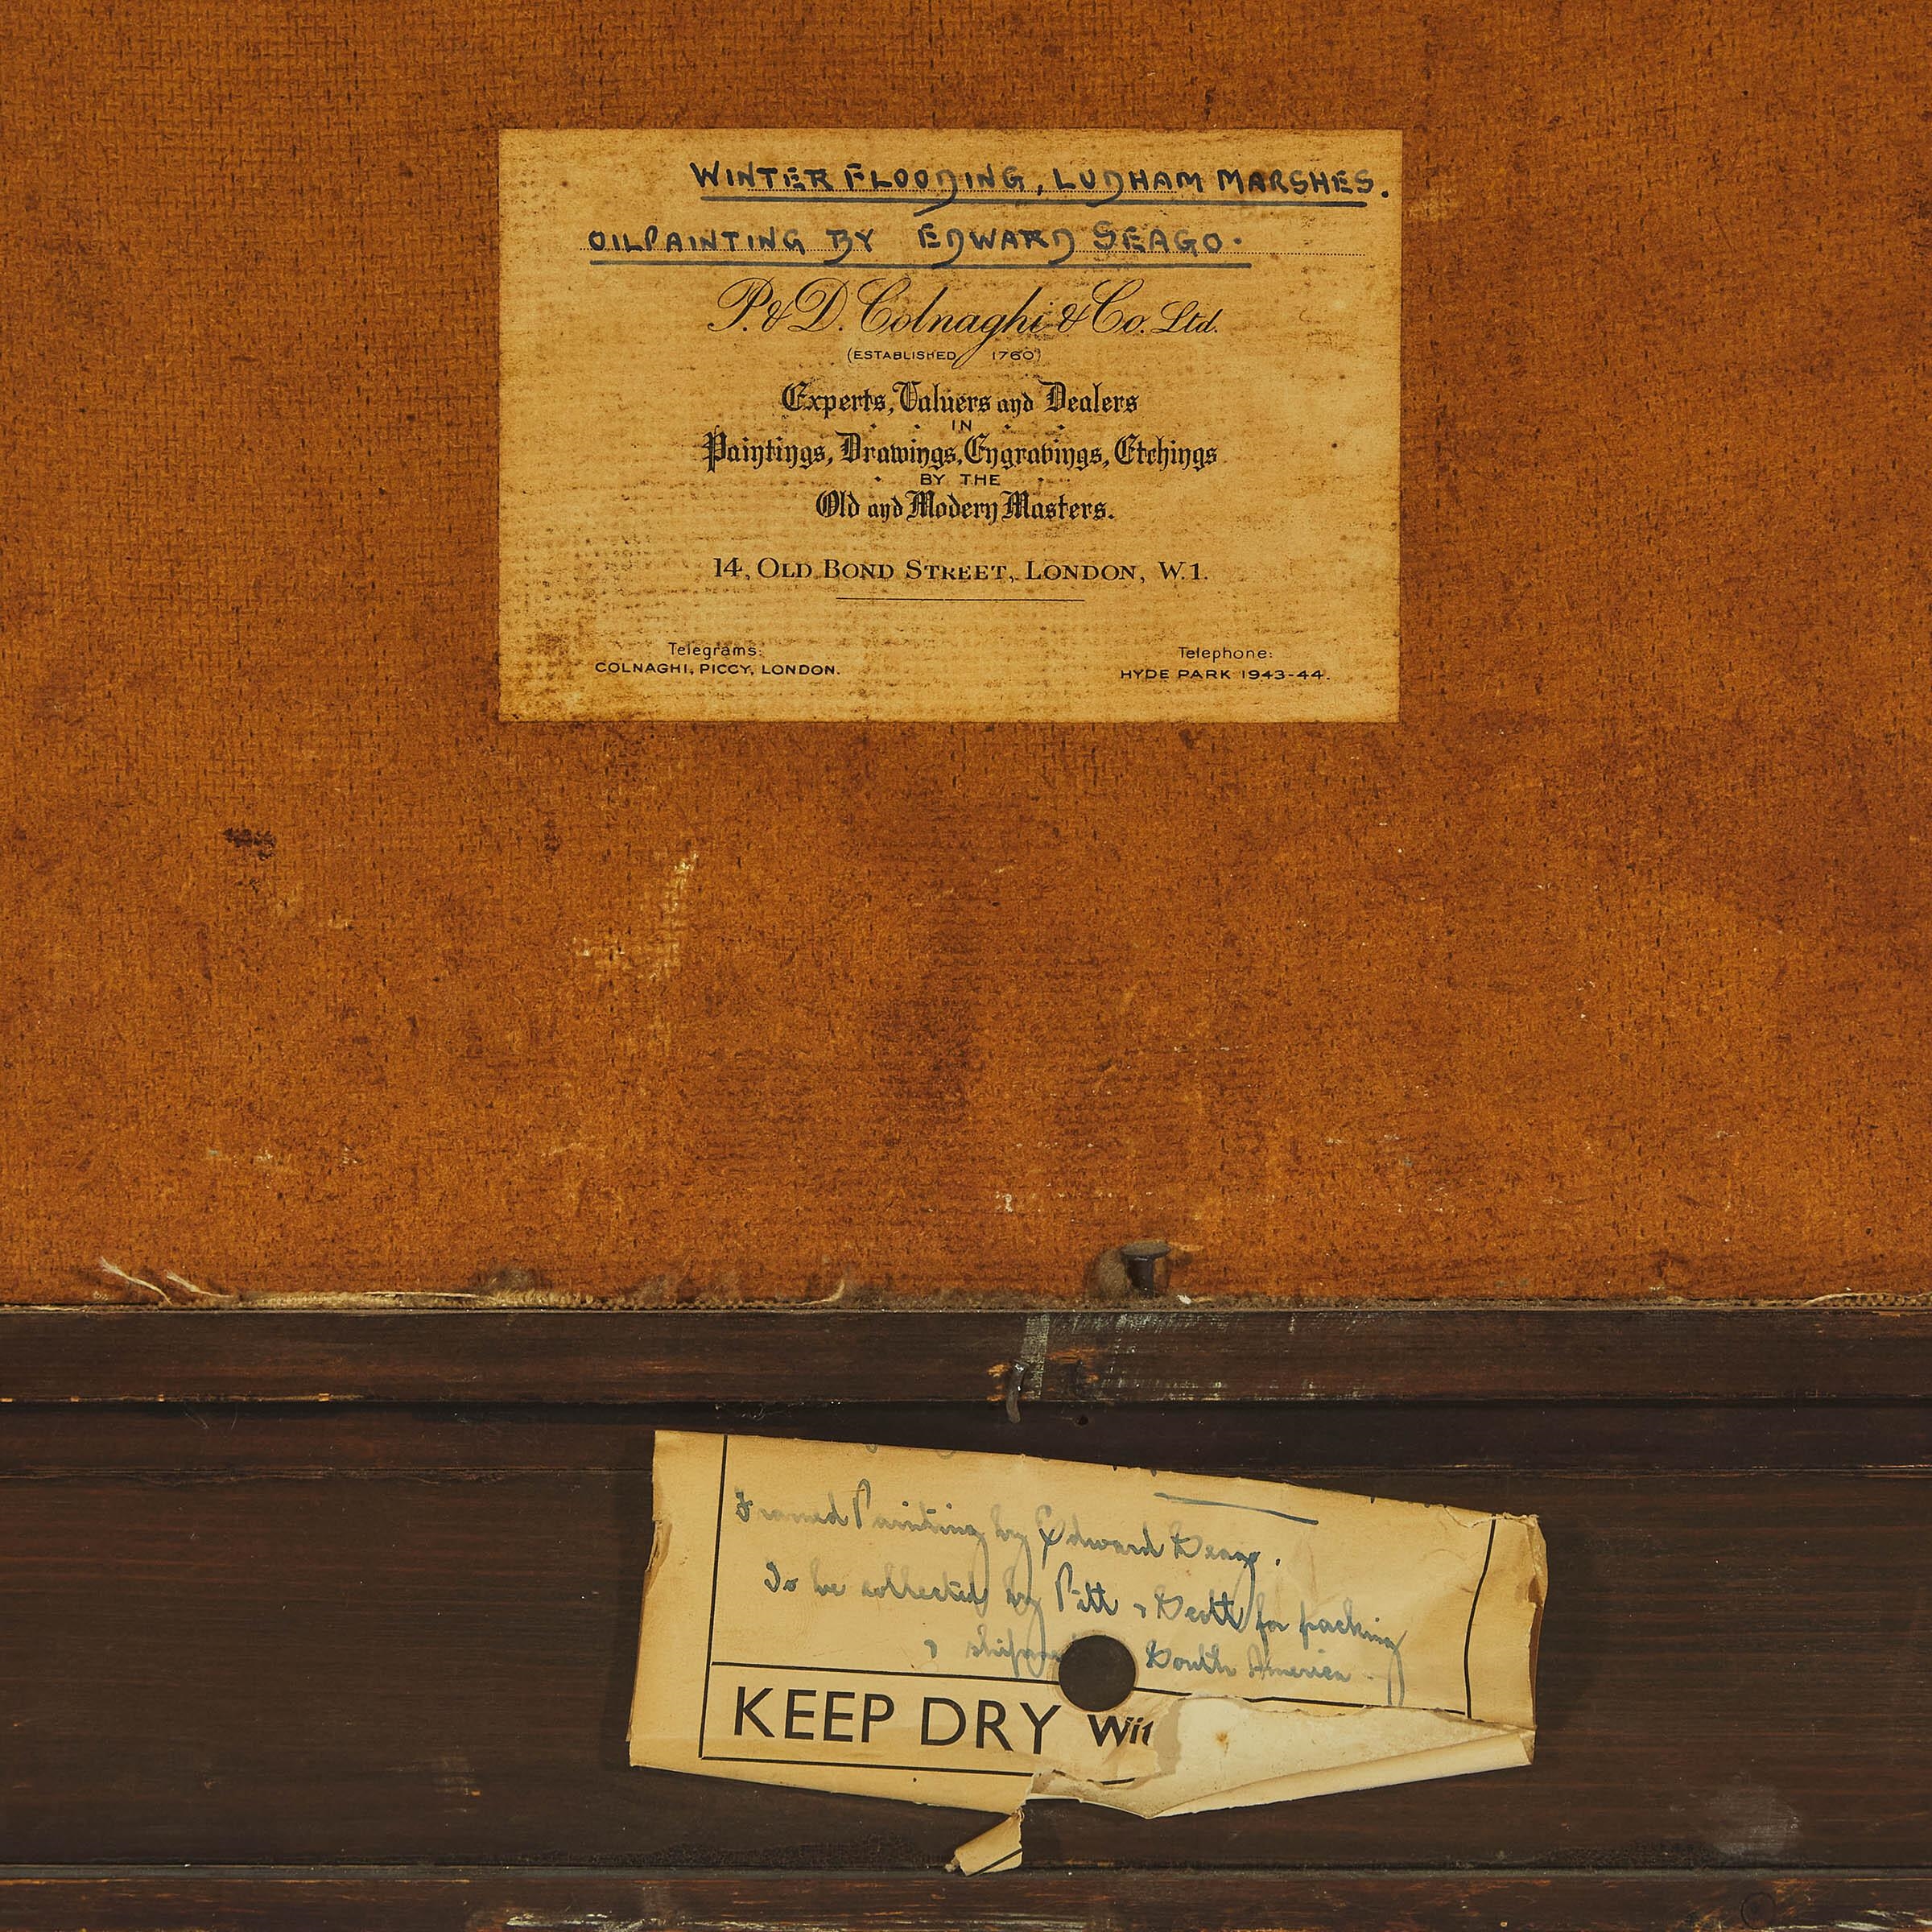 WINTER FLOODING, LUDHAM MARSHES.
OIL PAINTING BY EDWARD SEAGO.
P. & D. Colnaghi & Co. Ltd.
(ESTABLISHED 1760)
Experts, Valuers and Dealers
IN
Paintings, Drawings, Engravings, Etchings
BY THE
Old and Modern Masters.
14, OLD BOND STREET, LONDON, W.1.
Telegrams:
COLNAGHI, PICCY, LONDON.
Telephone:
HYDE PARK 1943-44.
Framed Painting by Edward Seago.
To be collected by Pitt & Scott for packing
& South America -
KEEP DRY